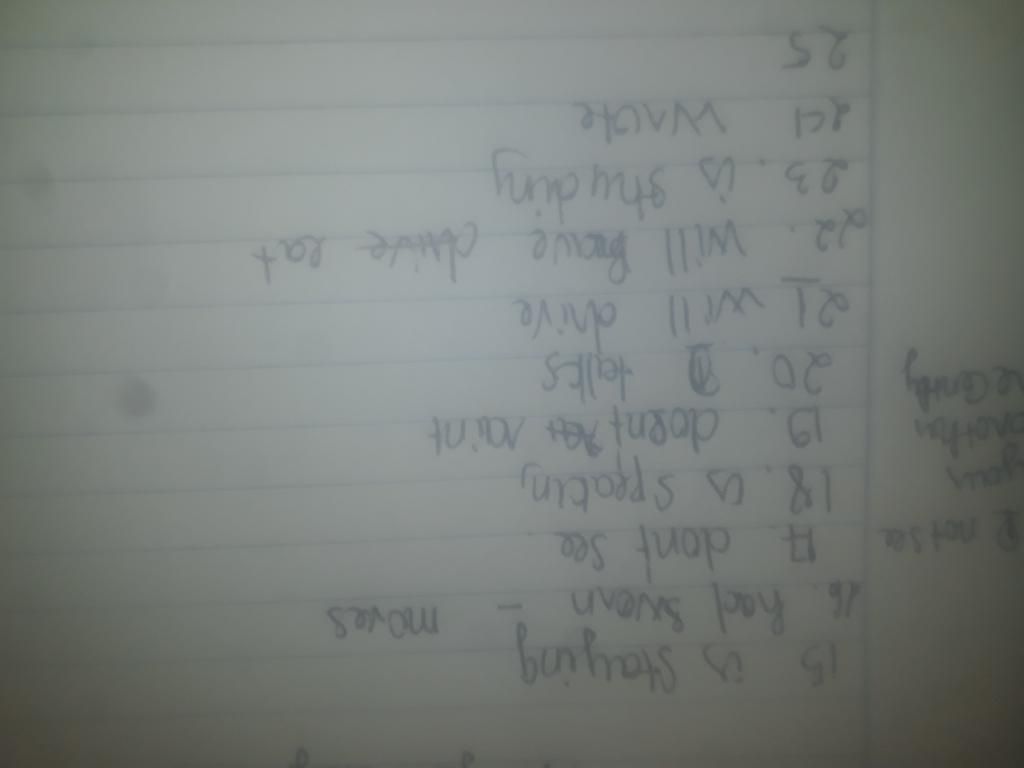 15 is staying
16. had swern - moves
17. dont see
18. is speating
19. doent raint
20. talks
21 will drive
22. will have drive eat
23. is stuiding
24 wrote
25
I not see
your
another
recently